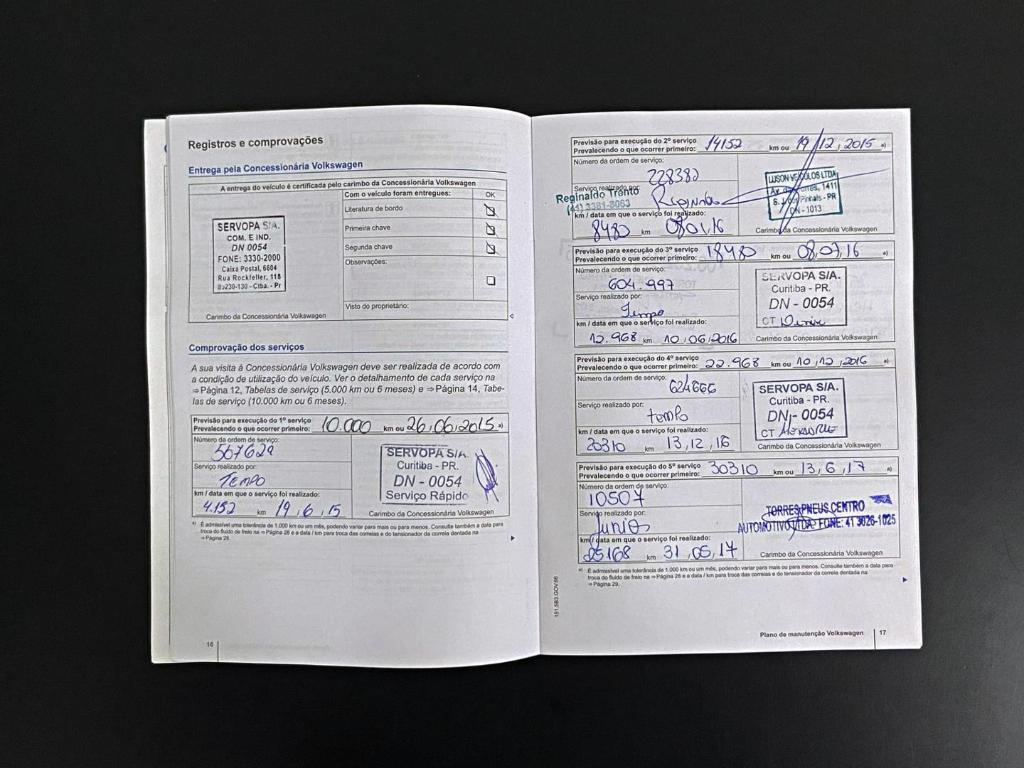 Registros e comprovações
Entrega pela Concessionária Volkswagen
A entrega do veículo é certificada pelo carimbo da Concessionária Volkswagen
Com o veículo foram entregues: OK
Literatura de bordo
Primeira chave
Segunda chave
Observações:
Visto do proprietário:
SERVOPA S/A.
COM. E IND.
DN 0054
FONE: 3330-2000
Caixa Postal, 6604
Rua Rockfeller, 118
80230-130 - Ctba. - Pr
Carimbo da Concessionária Volkswagen
Comprovação dos serviços
A sua visita à Concessionária Volkswagen deve ser realizada de acordo com
a condição de utilização do veículo. Ver o detalhamento de cada serviço na
⇒Página 12, Tabelas de serviço (5.000 km ou 6 meses) e ⇒Página 14, Tabe-
las de serviço (10.000 km ou 6 meses).
Previsão para execução do 1º serviço
Prevalecendo o que ocorrer primeiro: 10.000 km ou 26,06,2015 a)
Número da ordem de serviço:
567629
Serviço realizado por:
TEMPO
km / data em que o serviço foi realizado:
4.152 km 19, 6, 15
SERVOPA S/A
Curitiba - PR.
DN - 0054
Serviço Rápido
Carimbo da Concessionária Volkswagen
a) É admissível uma tolerância de 1.000 km ou um mês, podendo variar para mais ou para menos. Consulte também a data para
troca do fluido de freio na ⇒Página 28 e a data / km para troca das correias e do tensionador da correia dentada na
⇒Página 29.
16
Previsão para execução do 2º serviço
Prevalecendo o que ocorrer primeiro: 14152 km ou 19/12,2015 a)
Número da ordem de serviço:
228382
Serviço realizado por:
Reginaldo Trento
(41) 3381-8083
km / data em que o serviço foi realizado:
8480 km 08,01,16
LUSON VEÍCULOS LTDA
1411
S. J. dos Pinhais - PR
DN - 1013
Carimbo da Concessionária Volkswagen
Previsão para execução do 3º serviço
Prevalecendo o que ocorrer primeiro: 18480 km ou 08,07,16 a)
Número da ordem de serviço:
604.997
Serviço realizado por:
Tempo
km / data em que o serviço foi realizado:
12.968 km 10,06,2016
SERVOPA S/A.
Curitiba - PR.
DN - 0054
CT
Carimbo da Concessionária Volkswagen
Previsão para execução do 4º serviço
Prevalecendo o que ocorrer primeiro: 22.968 km ou 10,12,2016 a)
Número da ordem de serviço:
624666
Serviço realizado por:
tempo
km / data em que o serviço foi realizado:
20310 km 13,12,16
SERVOPA S/A.
Curitiba - PR.
DN - 0054
CT
Carimbo da Concessionária Volkswagen
Previsão para execução do 5º serviço
Prevalecendo o que ocorrer primeiro: 30310 km ou 13,6,17 a)
Número da ordem de serviço:
10507
Serviço realizado por:
Junio
km / data em que o serviço foi realizado:
25168 km 31,05,17
TORRES PNEUS CENTRO
AUTOMOTIVO LTDA FONE: 41 3026-1025
Carimbo da Concessionária Volkswagen
a) É admissível uma tolerância de 1.000 km ou um mês, podendo variar para mais ou para menos. Consulte também a data para
troca do fluido de freio na ⇒Página 28 e a data / km para troca das correias e do tensionador da correia dentada na
⇒Página 29.
Plano de manutenção Volkswagen 17